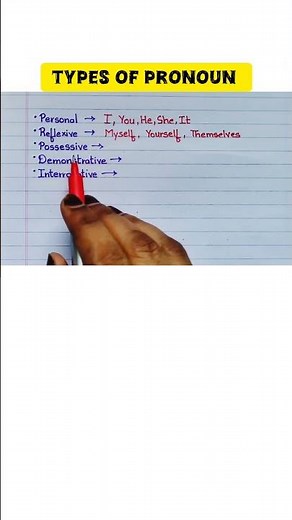 TYPES OF PRONOUN
• Personal → I, You, He, She, It
• Reflexive → Myself, Yourself, Themselves
• Possessive →
• Demonstrative →
• Interrogative →